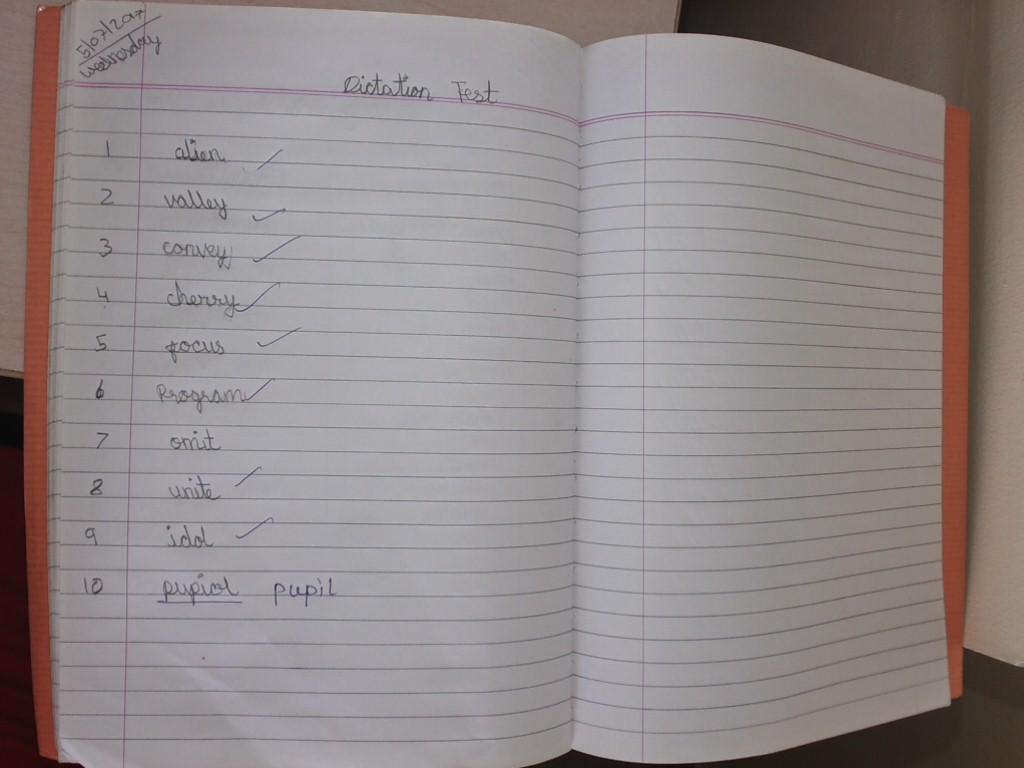 5/07/2017
Wednesday
Dictation Test
1 alien
2 valley
3 convey
4 cherry
5 focus
6 Program
7 omit
8 unite
9 idol
10 pupiol pupil